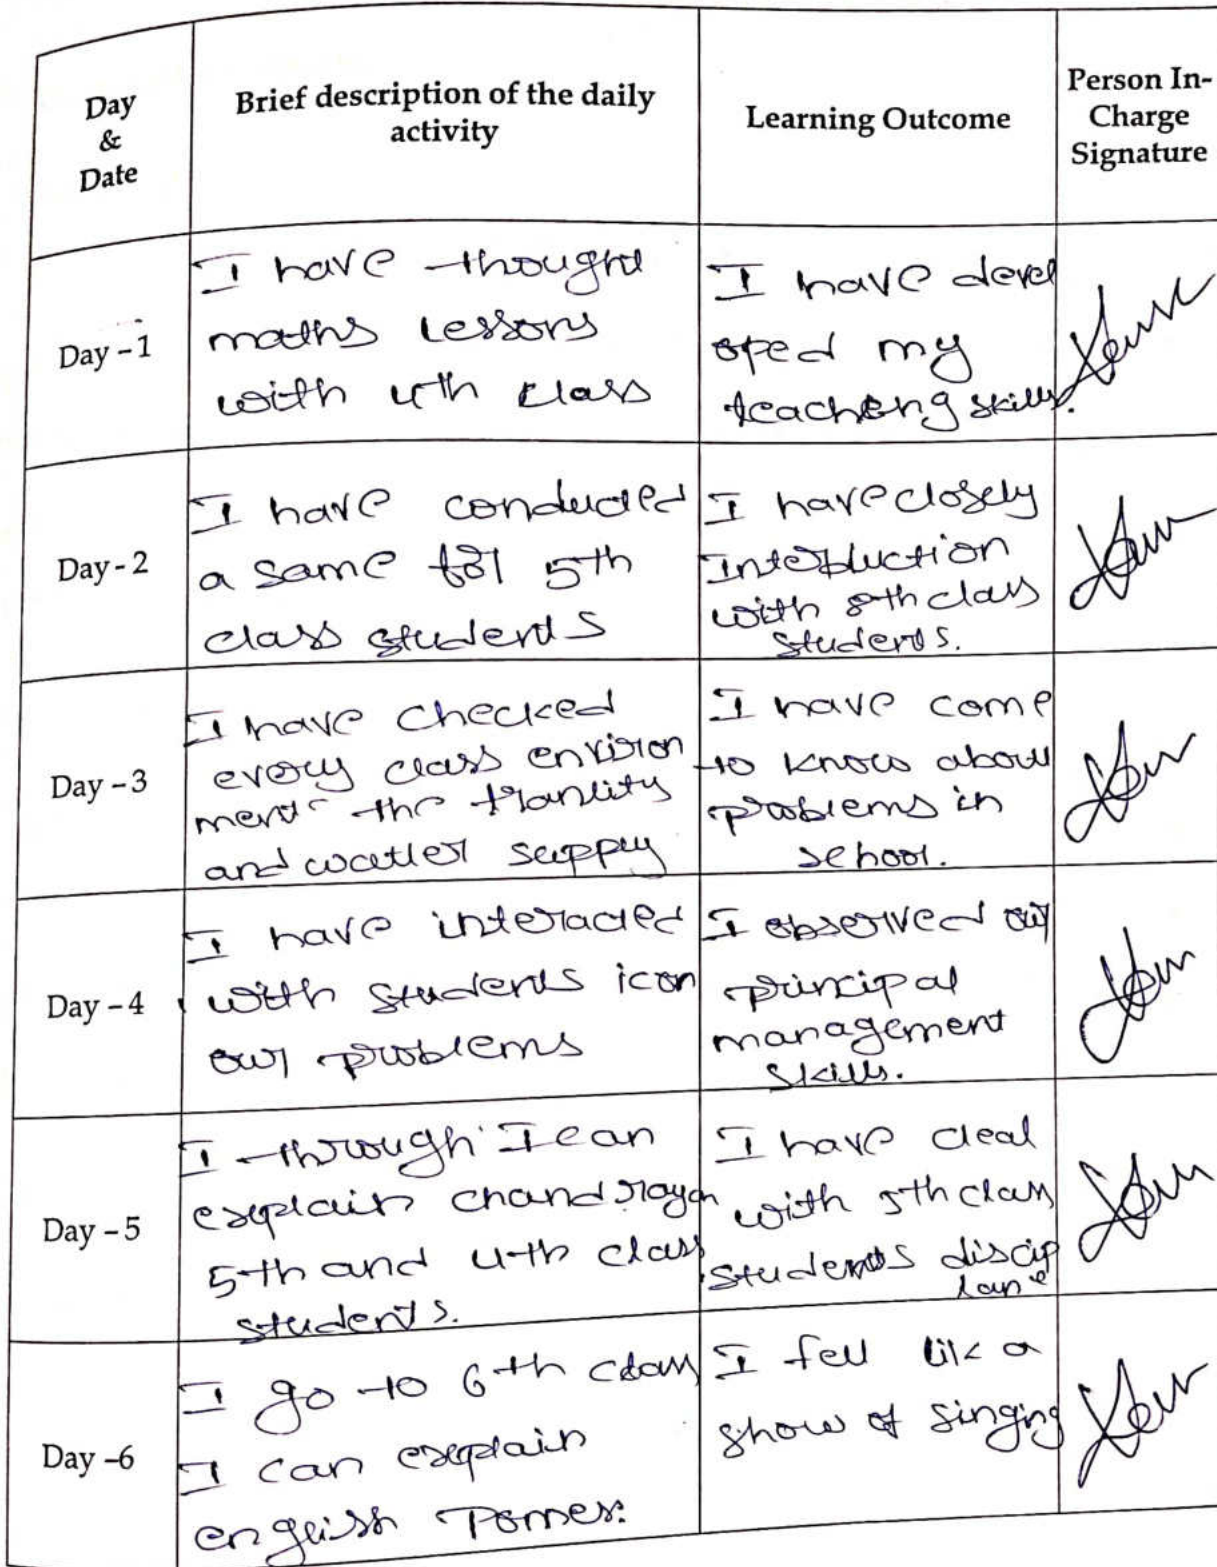 Day
&
Date
Brief description of the daily
activity
Learning Outcome
Person In-
Charge
Signature
Day - 1
I have thought
maths lessons
with 4th class
I have devel
oped my
teaching skills.
Day - 2
I have conducted
a same for 5th
class students
I have closely
Intebluction
with 8th class
students.
Day - 3
I have checked
every class environ
ment the tranlity
and watler supply
I have come
to know about
problems in
school.
Day - 4
I have interacted
with students icon
our problems
I observed our
principal
management
skills.
Day - 5
I through I can
explain chandrayan
5th and 4th class
students.
I have deal
with 5th class
students discip
lane
Day -6
I go to 6th class
I can explain
english Pomes.
I fell lik a
show of singing